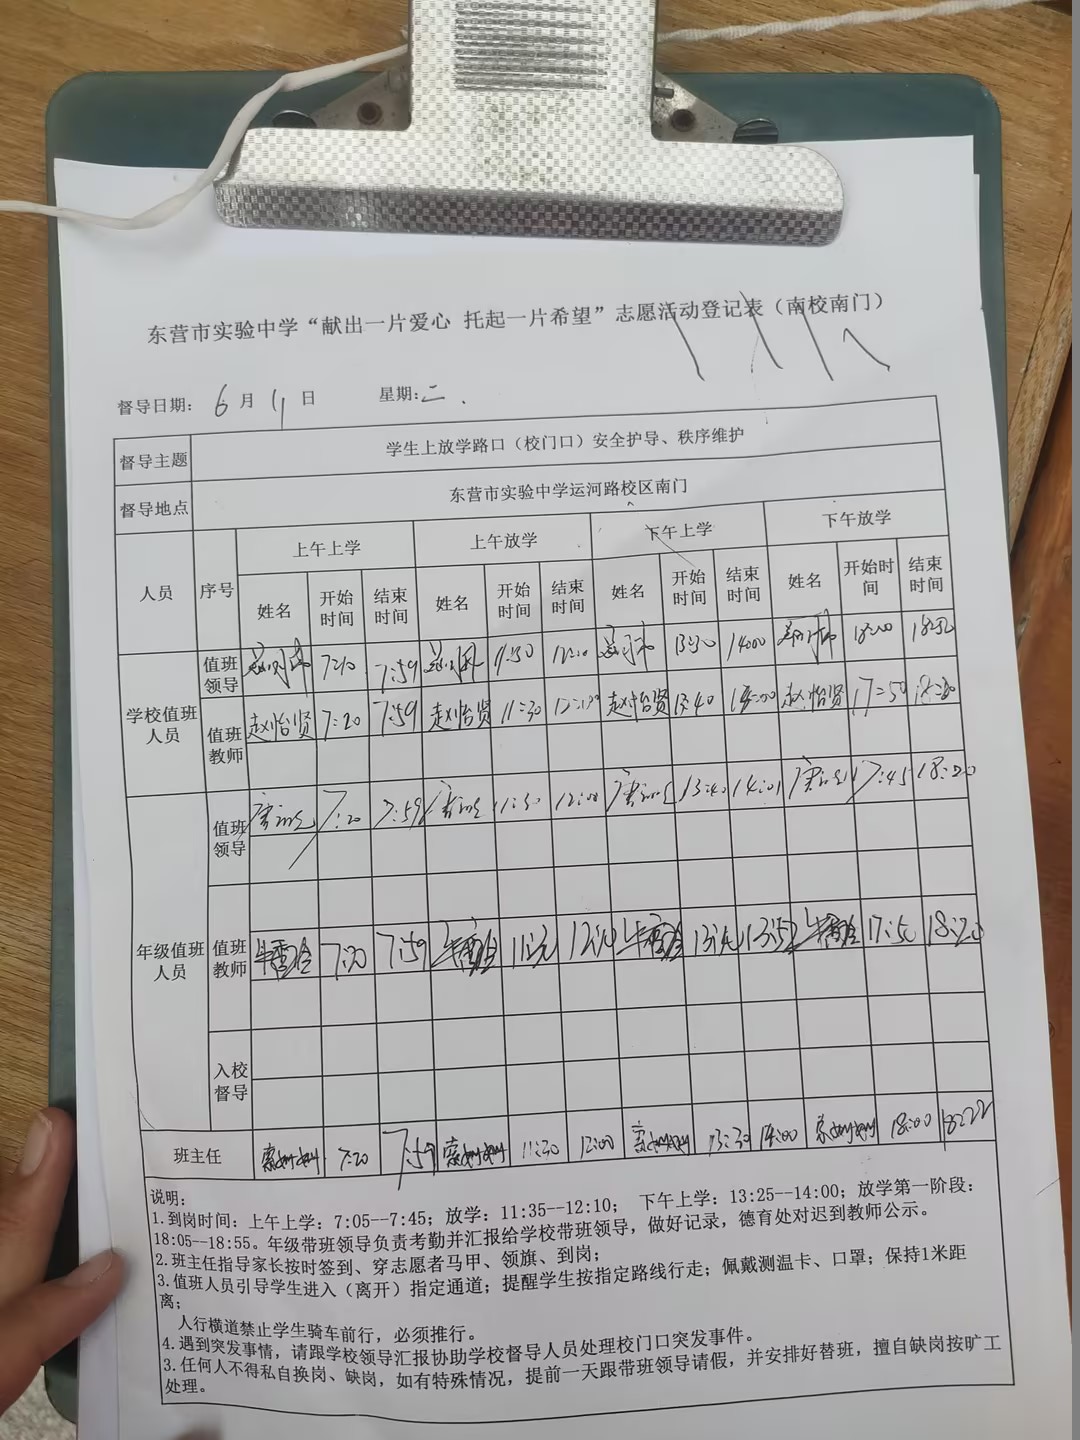 东营市实验中学“献出一片爱心 托起一片希望”志愿活动登记表（南校南门）
督导日期: 6 月 11 日 星期:二.
督导主题 学生上放学路口（校门口）安全护导、秩序维护
督导地点 东营市实验中学运河路校区南门
人员 序号 上午上学 上午放学 下午上学 下午放学
姓名 开始时间 结束时间 姓名 开始时间 结束时间 姓名 开始时间 结束时间 姓名 开始时间 结束时间
学校值班人员 值班领导 7:59 11:30 14:00
值班教师 赵怡贤 7:20 7:59 赵怡贤 11:30 赵怡贤 13:40 赵怡贤 17:50
年级值班人员 值班领导 7:20 7:59 11:30 12:00 13:40 14:01 17:45 18:20
值班教师 7:20 7:59 12:10 13:40 13:52 17:50 18:20
入校督导
班主任 7:20 7:59 11:30 12:00 13:30 14:00 18:00 18:22
说明:
1.到岗时间: 上午上学: 7:05--7:45; 放学: 11:35--12:10; 下午上学: 13:25--14:00; 放学第一阶段:
18:05--18:55。年级带班领导负责考勤并汇报给学校带班领导，做好记录，德育处对迟到教师公示。
2.班主任指导家长按时签到、穿志愿者马甲、领旗、到岗;
3.值班人员引导学生进入（离开）指定通道; 提醒学生按指定路线行走; 佩戴测温卡、口罩; 保持1米距
离;
人行横道禁止学生骑车前行，必须推行。
4.遇到突发事情，请跟学校领导汇报协助学校督导人员处理校门口突发事件。
3.任何人不得私自换岗、缺岗，如有特殊情况，提前一天跟带班领导请假，并安排好替班，擅自缺岗按旷工
处理。